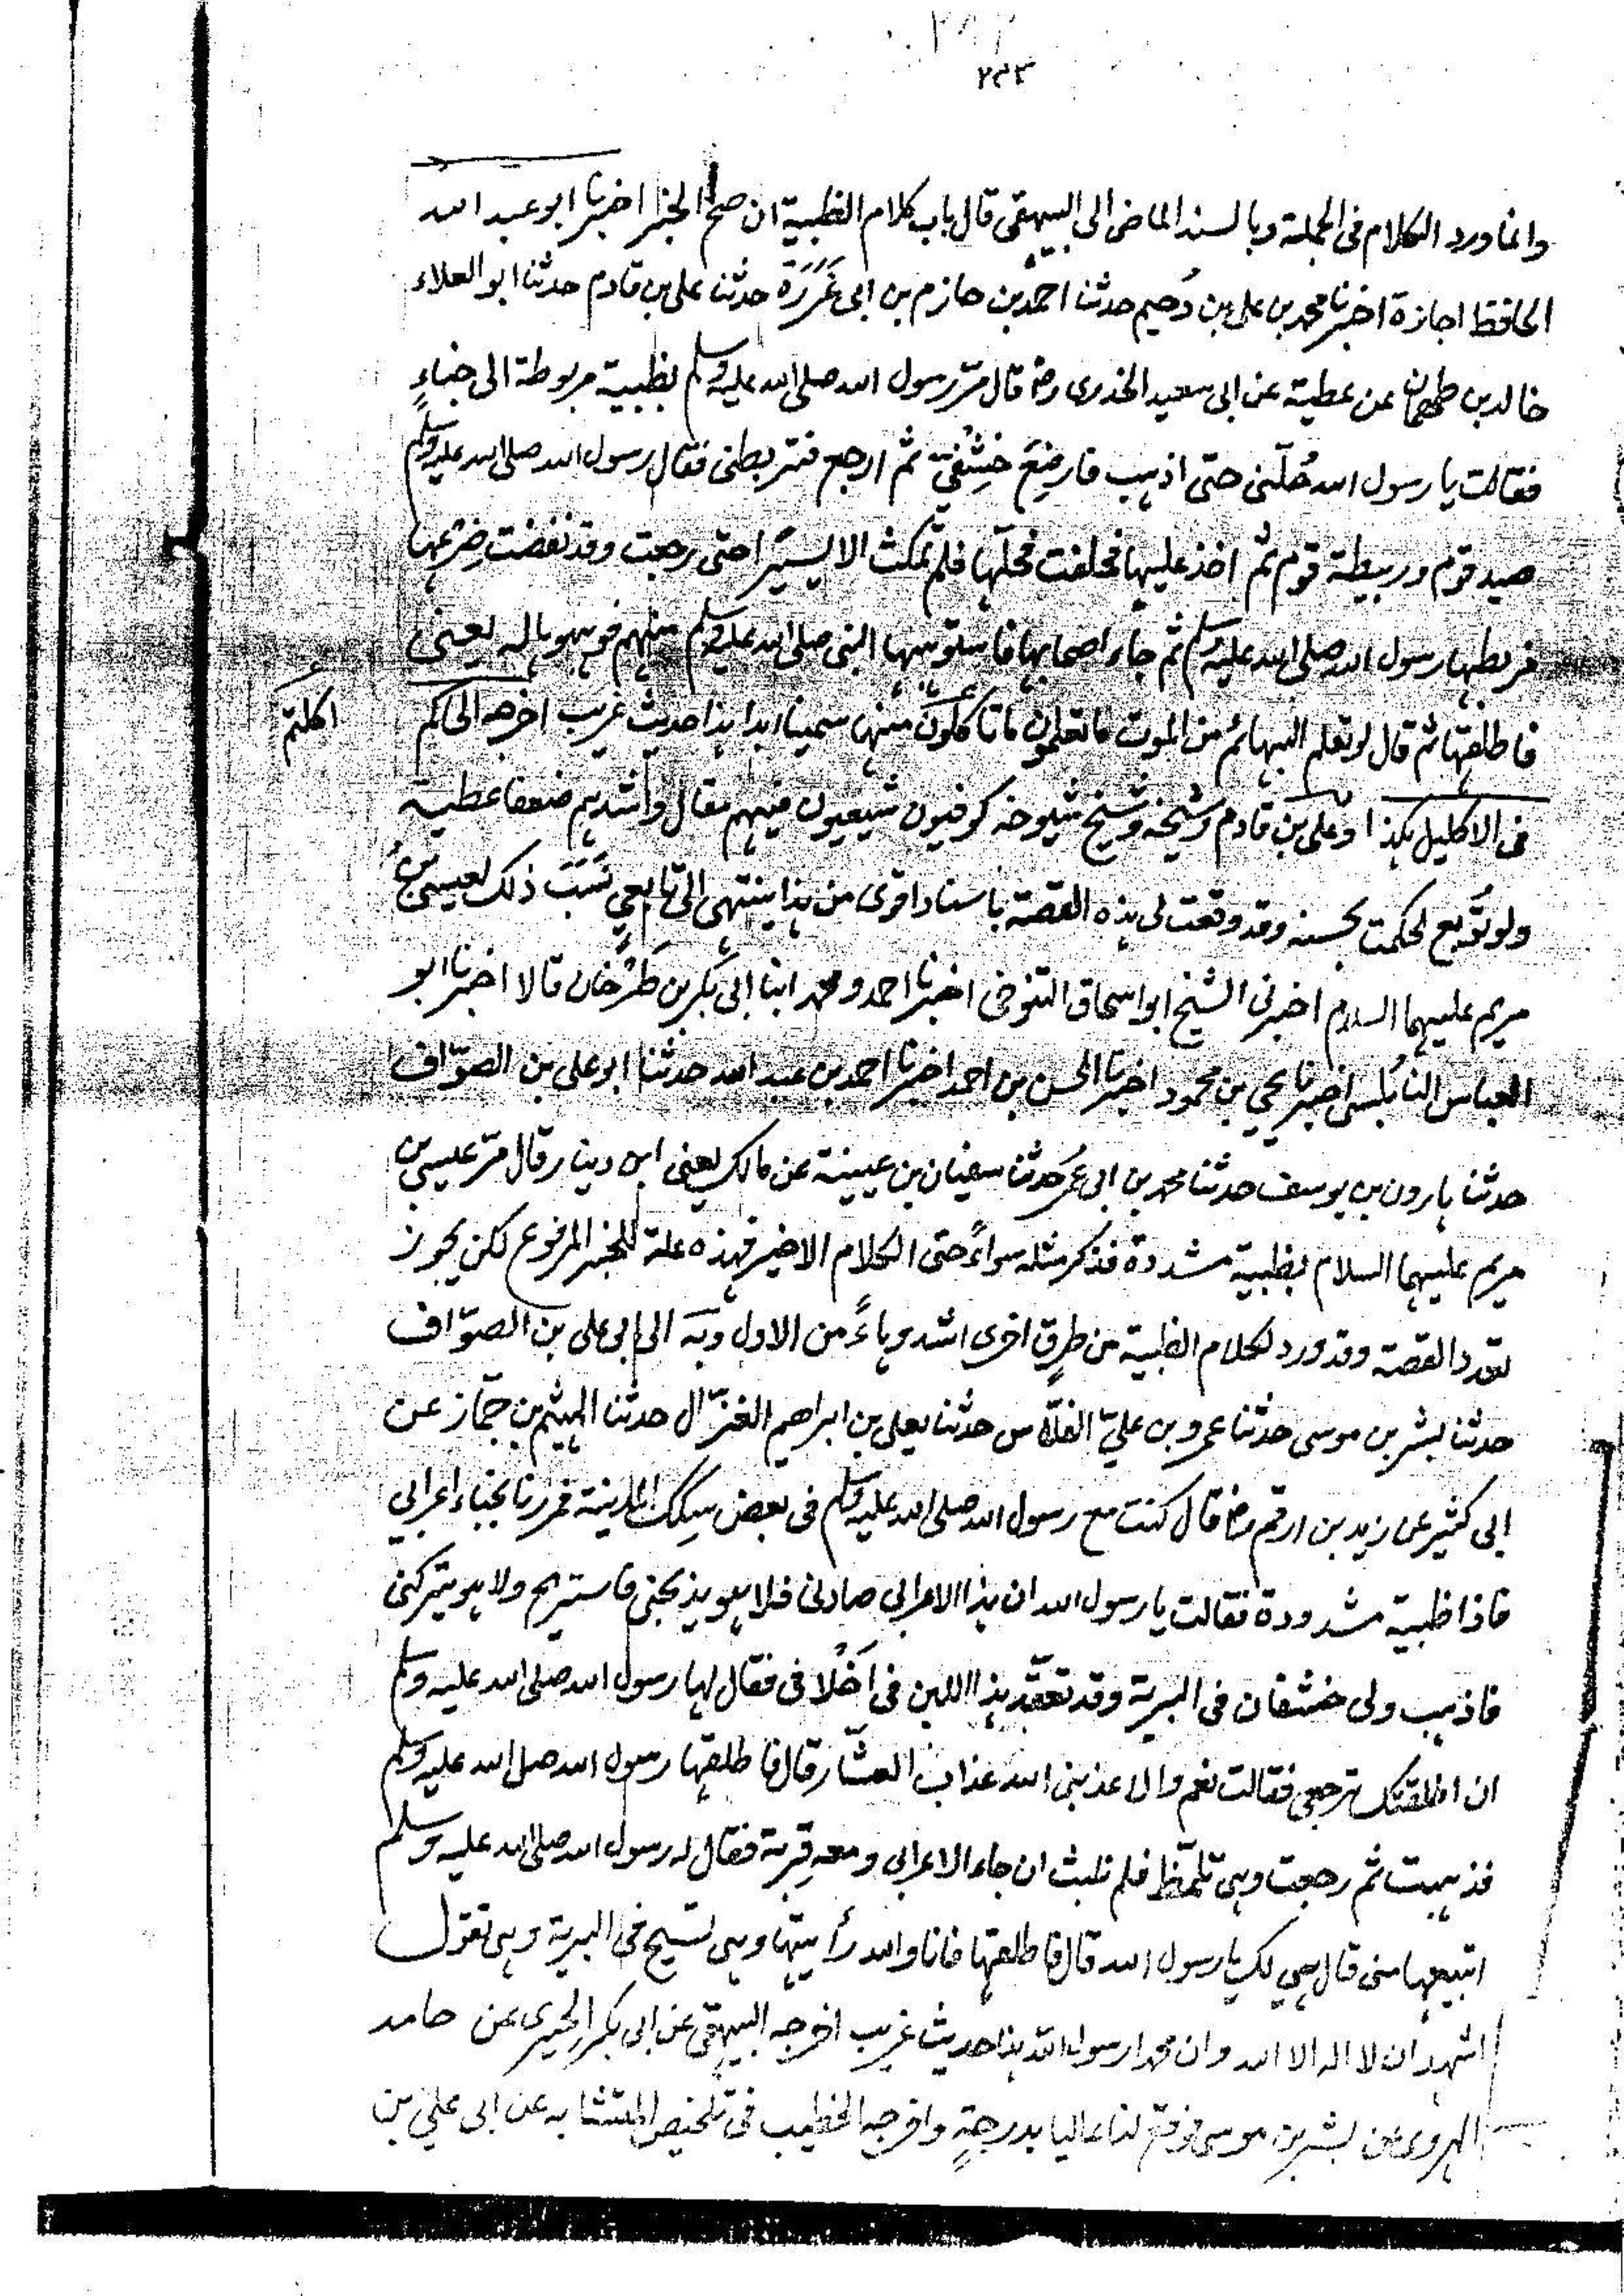 ٢٣٣
وانما ورد الكلام فى الجملة وبالسند الماضى الى البيهقى قال باب كلام الظبية ان صح الخبر اخبرنا ابو عبد الله
الحافظ اجازة اخبرنا محمد بن على بن دُحيم حدثنا احمد بن حازم بن ابى غَرَزَة حدثنا على بن قادم حدثنا ابو العلاء
خالد بن طهمان عن عطية عن ابى سعيد الخدرى رضـ قال مرّ رسول الله صلى الله عليه وسلم بظبية مربوطة الى خباءٍ
فقالت يا رسول الله حُلّنى حتى اذهب فارضِعَ خِشْفَيّ ثم ارجع فتربطنى فقال رسول الله صلى الله عليه وسلم
صيد قوم وربيطة قوم ثم اخذ عليها فحلفت فحلّها فلم تمكث الا يسيرا حتى رجعت وقد نفضت ضرعها
فربطها رسول الله صلى الله عليه وسلم ثم جاء اصحابها فاستوهبها النبى صلى الله عليه وسلم منهم فوهبوها له يعنى
فاطلقها ثم قال لو تعلم البهائمُ من الموت ما تعلمون ما تأكلون منها سمينا ابدا هذا حديث غريب اخرجه الحاكم
اكلتم
فى الاكليل هكذا وعلى بن قادم وشيخه وشيخ شيوخه كوفيون شيعيون فيهم مقال واشدهم ضعفا عطية
ولو تُوبع لحكمت بحسنه وقد وقعت لى هذه القصة باسناد اقوى من هذا ينتهى الى تابعي نَسَبَ ذلك لعيسى بن
مريم عليهما السلام اخبرنى الشيخ ابو اسحاق التنوخى اخبرنا احمد ومحمد ابنا ابى بكر بن طَرْخان قالا اخبرنا ابو
العباس النابُلسى اخبرنا يحيى بن محمود اخبرنا الحسن بن احمد اخبرنا احمد بن عبد الله حدثنا ابو على بن الصوّاف
حدثنا هارون بن يوسف حدثنا محمد بن ابى عُمَر حدثنا سفيان بن عيينة عن مالك يعنى ابن دينار قال مرّ عيسى بن
مريم عليهما السلام بظبية مشددة فذكر مثله سواءً حتى الكلام الاخير فهذه علة للخبر المرفوع لكن يجوز
تعدد القصة وقد ورد لكلام الظبية من طرق اخرى اشد وهاءً من الاول وبَه الى ابى على بن الصوّاف
حدثنا بشر بن موسى حدثنا عمرو بن عليّ الفلّاس حدثنا يعلى بن ابراهيم الغزّال حدثنا الهيثم بن جمّاز عن
ابى كثير عن زيد بن ارقم رضـ قال كنت مع رسول الله صلى الله عليه وسلم فى بعض سِكك المدينة فمررنا بخباء اعرابي
فاذا ظبية مشدودة فقالت يا رسول الله ان هذا الاعرابى صادنى فلا هو يذبحنى فاستريح ولا هو يتركنى
فاذهب ولى خشفان فى البرية وقد تعقّد هذا اللبن فى اَخْلافى فقال لها رسول الله صلى الله عليه وسلم
ان اطلقتك ترجعى فقالت نعم والا عذبنى الله عذاب العشّار قال فاطلقها رسول الله صلى الله عليه وسلم
فذهبت ثم رجعت وهى تلمّظ فلم نلبث ان جاء الاعرابى ومعه قِربة فقال له رسول الله صلى الله عليه وسلم
اتبيعها منى قال هى لك يا رسول الله قال فاطلقها فانا والله رأيتها وهى تسيح فى البرية وهى تقول
اشهد ان لا اله الا الله وان محمدا رسول الله هذا حديث غريب اخرجه البيهقى عن ابى بكر الحيرى عن حامد
الهروى عن بشر بن موسى فوقع لنا عاليا بدرجةٍ واخرجه الخطيب فى تلخيص المتشابه عن ابى علي بن